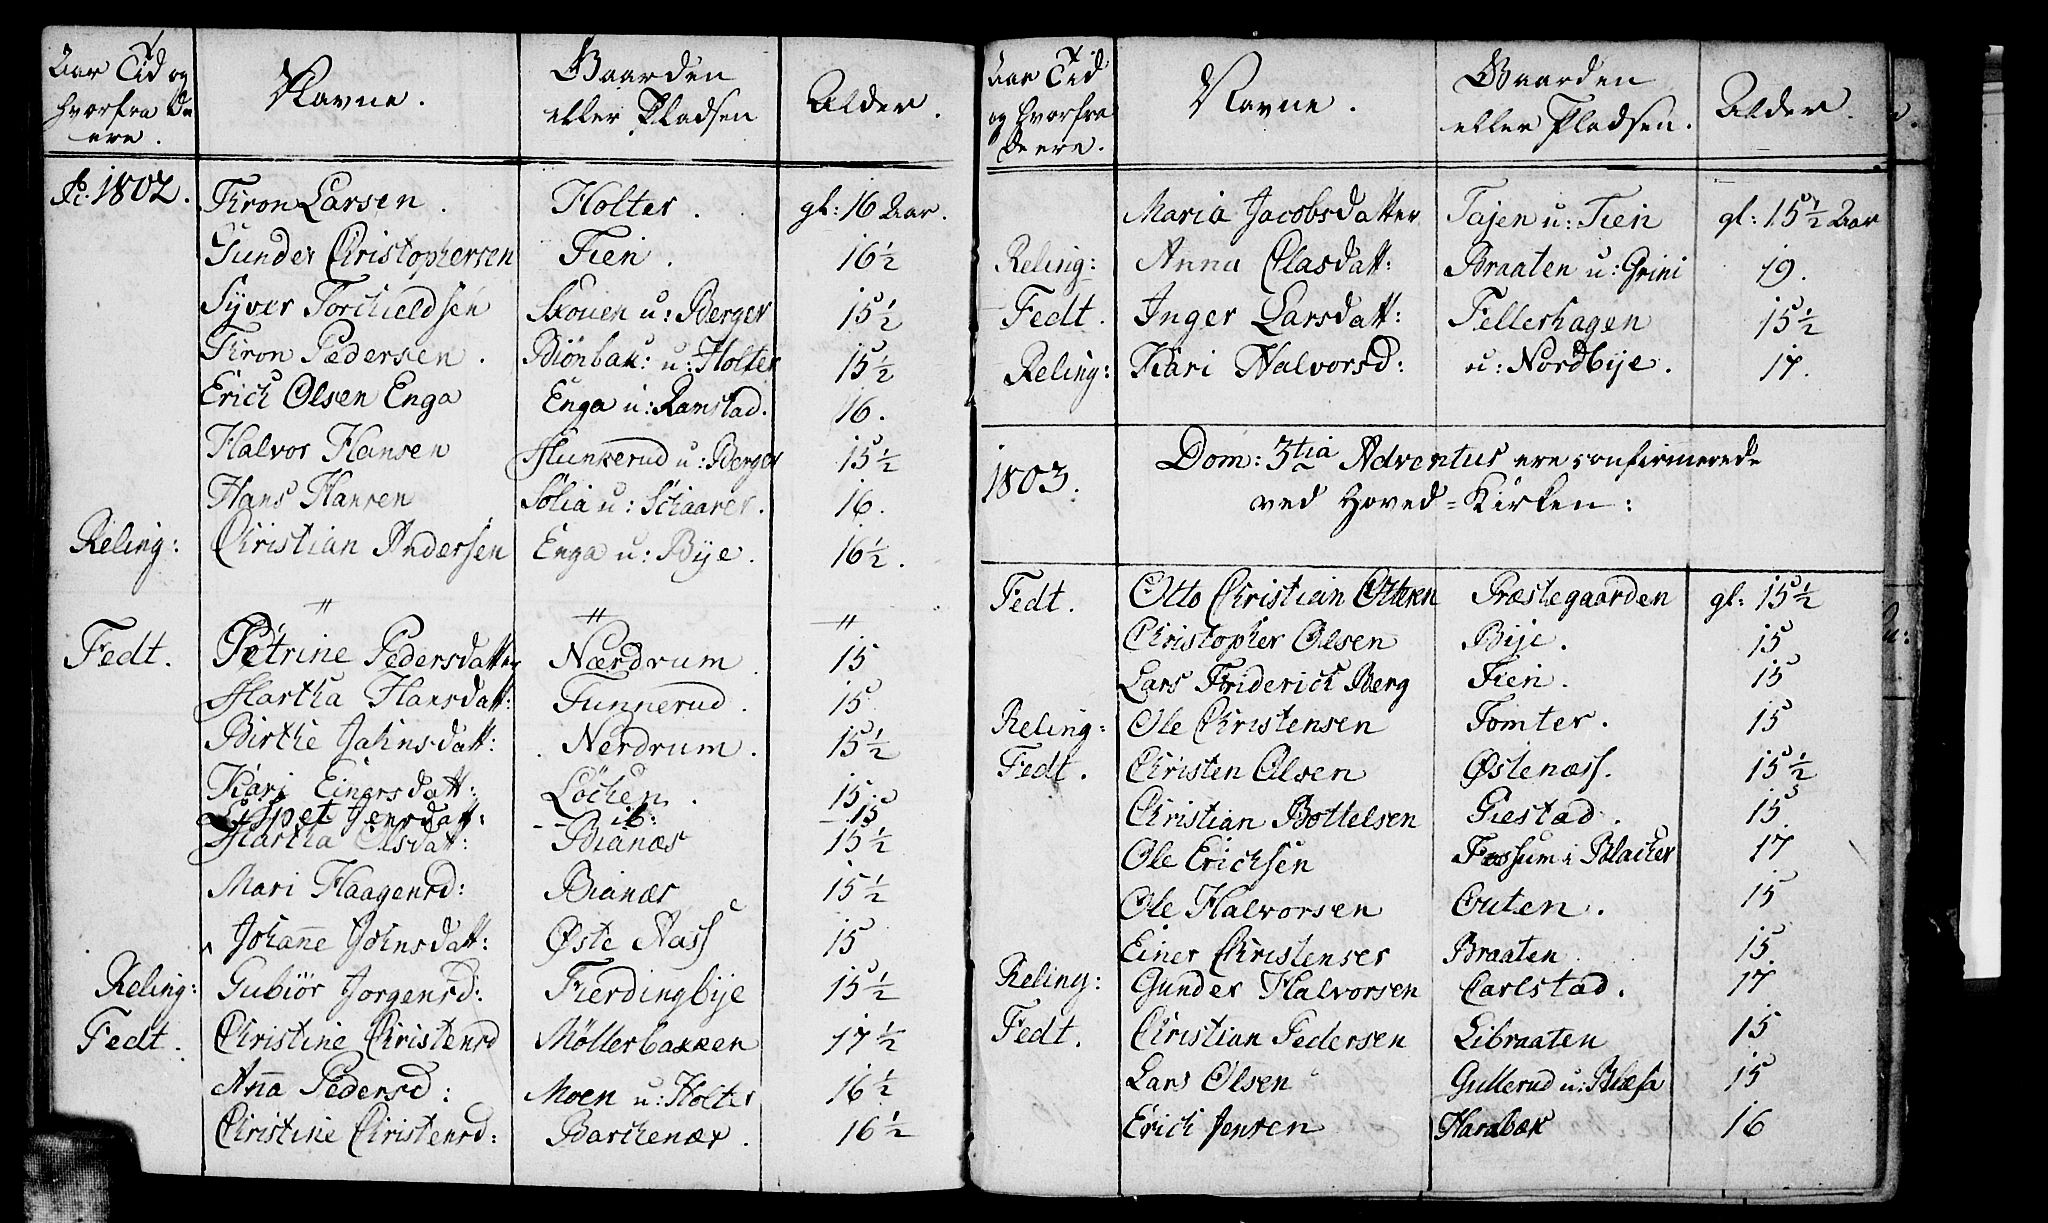 Aar Tid og hvorfra De ere. Navne. Gaarden eller Pladsen Alder.
Ao. 1802. Kron Larsen. Holter. gl: 16 Aar.
Gunder Christophersen Fien. 16 1/2
Syver Torchieldsen Skouen u: Berger 15 1/2
Kron Pedersen. Biönbak: u: Holter 15 1/2
Erich Olsen Enga Enga u: Ramstad. 16.
Halvor Hansen Hunkerud u: Berger 15 1/2
Hans Hansen Solia u: Schaarer. 16.
Reling: Christian Andersen Enga u: Bije. 16 1/2.
" " "
Fedt. Petrine Pedersdatter Nærdrum. 15
Martha Hansdatt: Funnerud. 15
Birthe Jahnsdatt: Nerdrum. 15 1/2
Kari Einersdatt: Löchen. 15
Lispet Jensdatt: - ib: - 15
Martha Olsdatt: Bianæs 15 1/2
Mari Haagensd: Bianæs 15 1/2
Johanne Johnsdatt: Øste Næss 15
Reling: Gubiör Jörgensd: Fierdingbije 15 1/2
Fedt. Christine Christensd Möllerbakken 17 1/2
Anna Pedersd: Moen u: Holter 16 1/2
Christine Christensd: Barchenæs. 16 1/2
Aar Tid og hvorfra De ere. Navne. Gaarden eller Pladsen. Alder.
Maria Jacobsdatter Tajen u: Fien gl: 15 1/2 Aar
Reling: Anna Olasdatt: Braaten u: Grini 19.
Fedt. Inger Larsdatt: Fellerhagen 15 1/2
Reling: Kari Halvorsd: u: Nordbije. 17.
1803. Dom: 3tia Adventus ere confirmerede
ved Hoved-Kirken:
Fedt. Otto Christian Ottesen Præstegaarden gl: 15 1/2
Christopher Olsen Bije. 15
Lars Friderich Berg Fien. 15
Reling: Ole Christensen Tomter. 15
Fedt. Christen Olsen Østenæss. 15 1/2
Christian Bottelsen Giestad. 15
Ole Erichsen Fossum i Blacher 17
Ole Halvorsen Outen. 15
Einer Christensen Braaten 15
Reling: Gunder Halvorsen Carlstad. 17
Fedt. Christian Pedersen Libraaten 15
Lars Olsen Gullerud u: Blæsa 15
Erich Jensen Harabæk 16